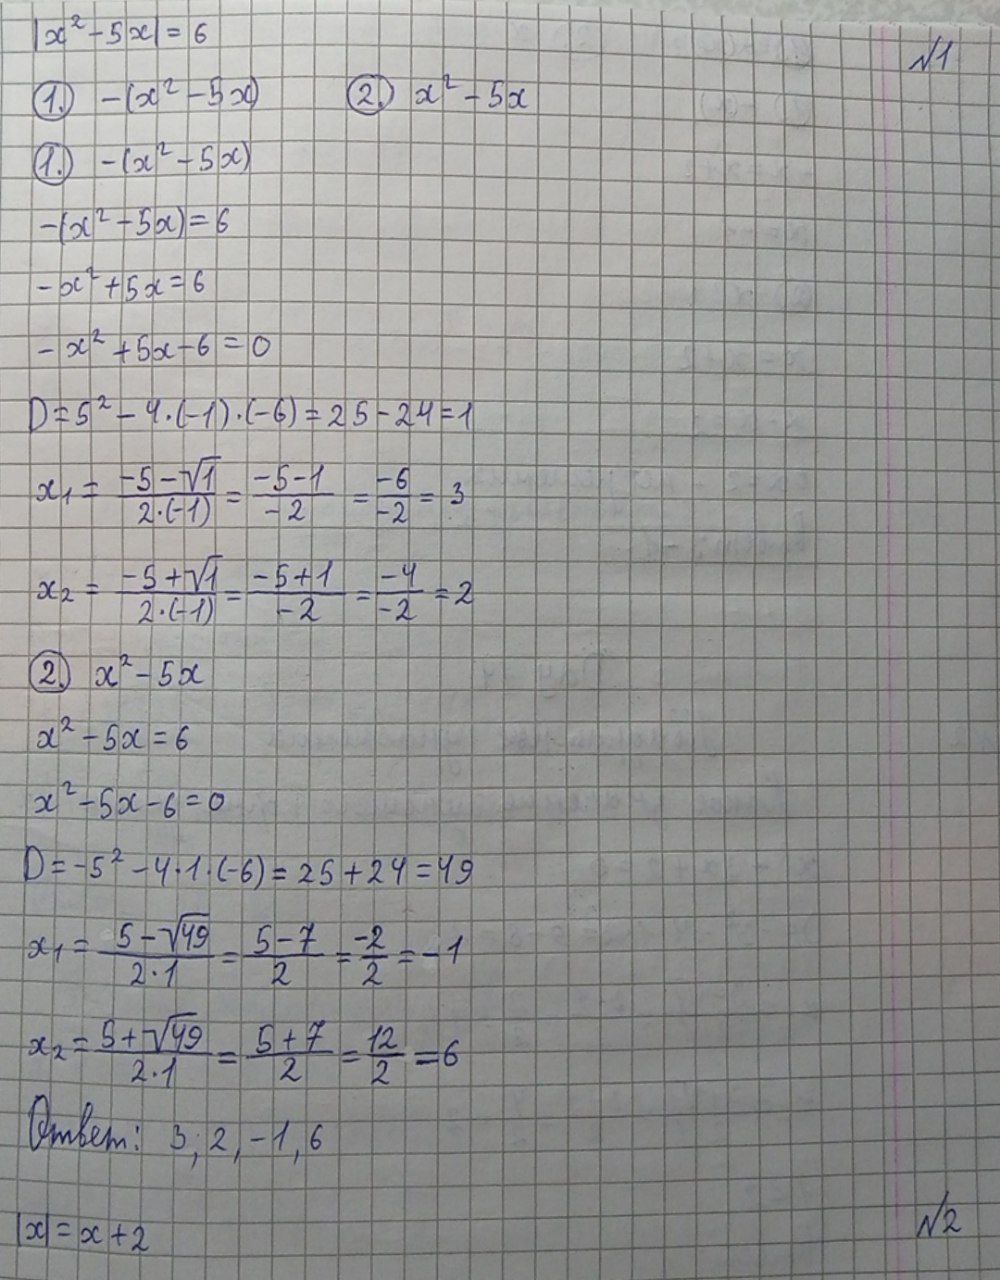 |x² - 5x| = 6
№1
1. -(x² - 5x) 2. x² - 5x
1. -(x² - 5x)
-(x² - 5x) = 6
-x² + 5x = 6
-x² + 5x - 6 = 0
D = 5² - 4·(-1)·(-6) = 25 - 24 = 1
x₁ = (-5 - √1)/(2·(-1)) = (-5 - 1)/(-2) = (-6)/(-2) = 3
x₂ = (-5 + √1)/(2·(-1)) = (-5 + 1)/(-2) = (-4)/(-2) = 2
2. x² - 5x
x² - 5x = 6
x² - 5x - 6 = 0
D = -5² - 4·1·(-6) = 25 + 24 = 49
x₁ = (5 - √49)/(2·1) = (5 - 7)/2 = (-2)/2 = -1
x₂ = (5 + √49)/(2·1) = (5 + 7)/2 = 12/2 = 6
Ответ: 3; 2, -1, 6
№2
|x| = x + 2